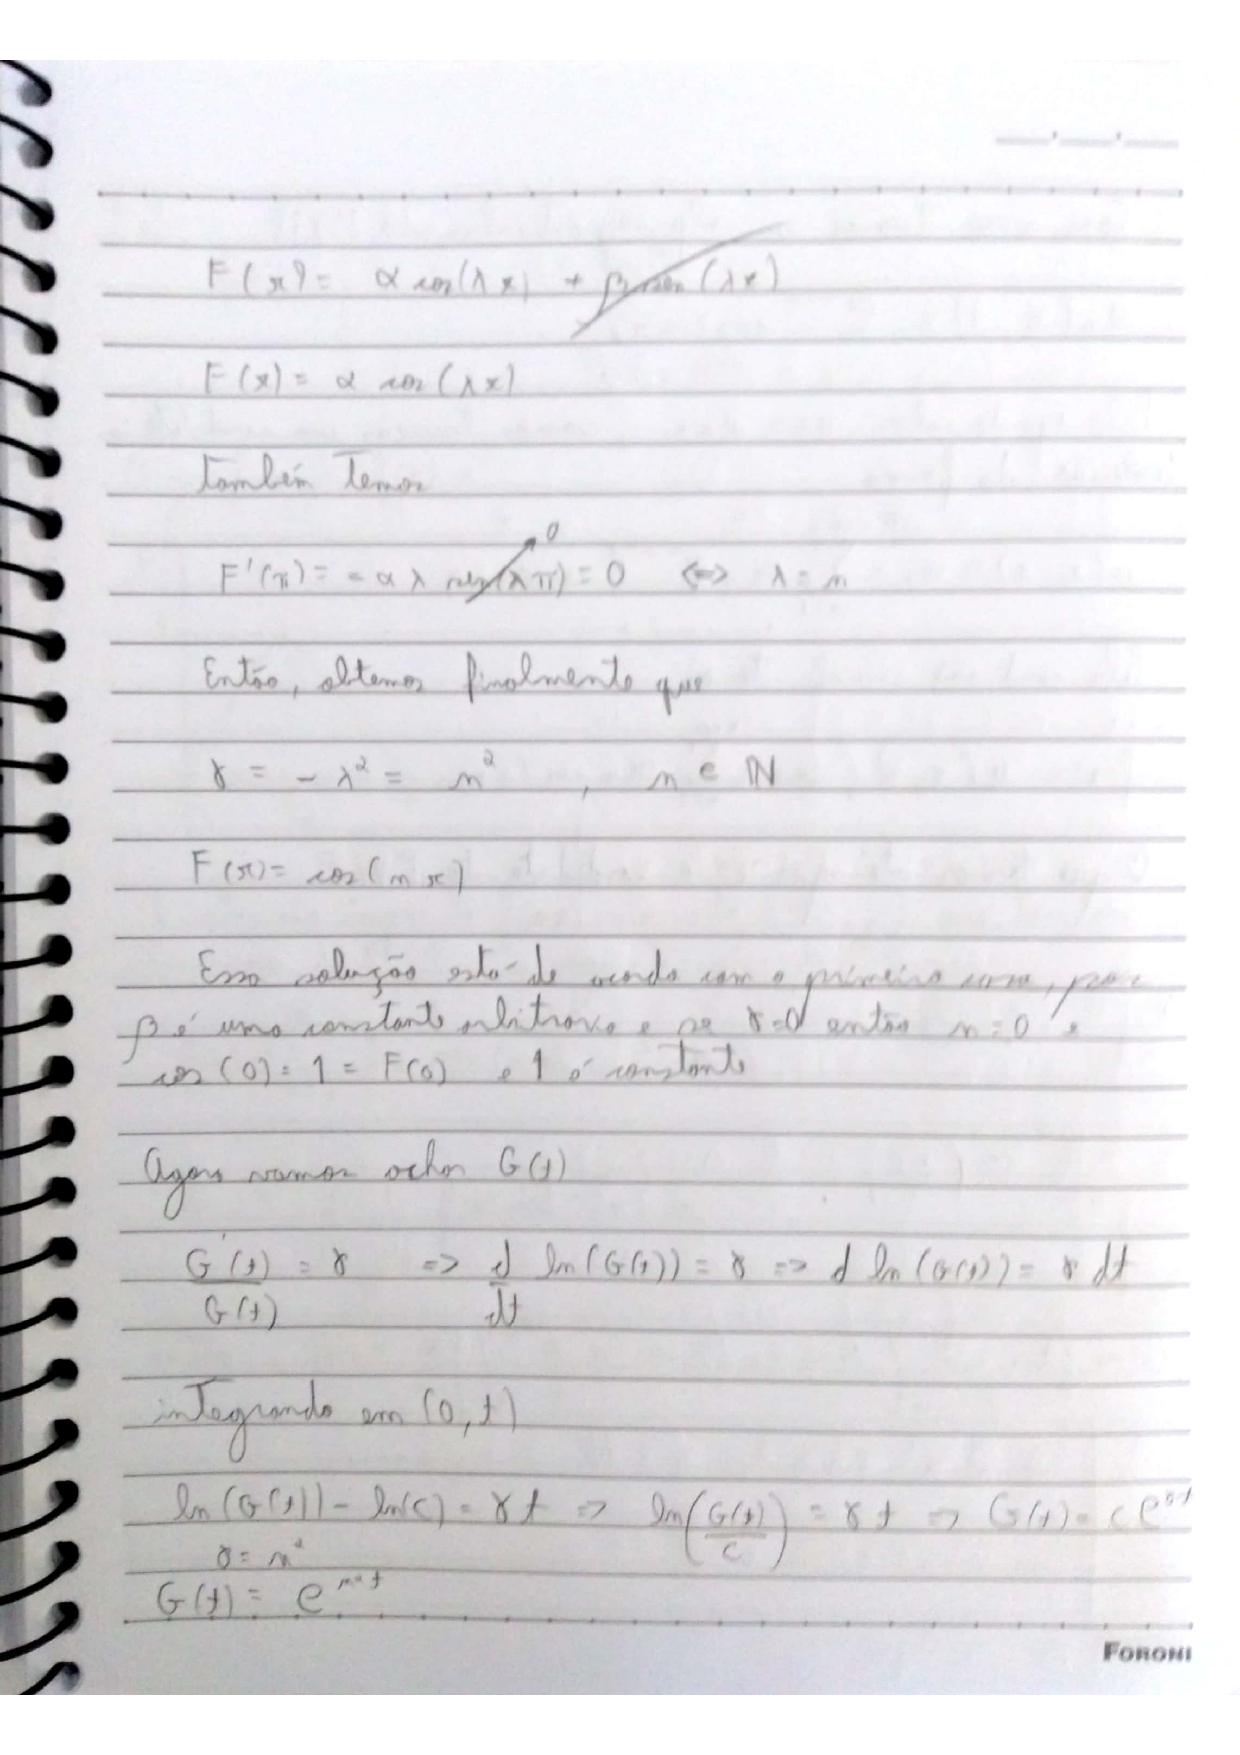 F(x) = α cos(λx) + β sen(λx)
F(x) = α cos(λx)
também temos
0
F'(π) = -αλ sen(λπ) = 0 <=> λ = n
Então, obtemos finalmente que
γ = -λ² = n² , n ∈ ℕ
F(x) = cos(nx)
Essa solução está de acordo com o primeiro caso, pois
β é uma constante arbitraria e se γ=0 então n=0 e
cos(0) = 1 = F(0) e 1 é constante
Agora vamos achar G(t)
G'(t)/G(t) = γ => d/dt ln(G(t)) = γ => d ln(G(t)) = γ dt
integrando em (0,t)
ln(G(t)) - ln(c) = γt => ln(G(t)/c) = γt => G(t) = c e^γt
γ = n²
G(t) = e^n²t
FORONI